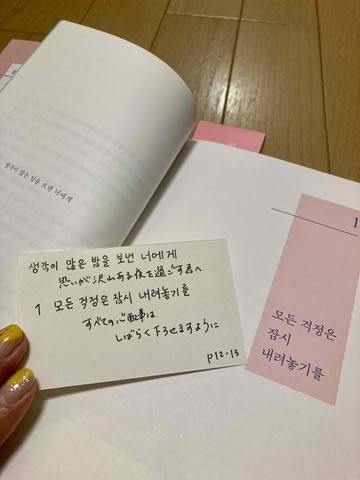 생각이 많은 밤을 보낸 너에게
생각이 많은 밤을 보낸 너에게
思いが沢山ある夜を過ごす君へ
1 모든 걱정은 잠시 내려놓기를
すべての心配事は
しばらく下ろせますように
p12-13
1
모든 걱정은
잠시
내려놓기를